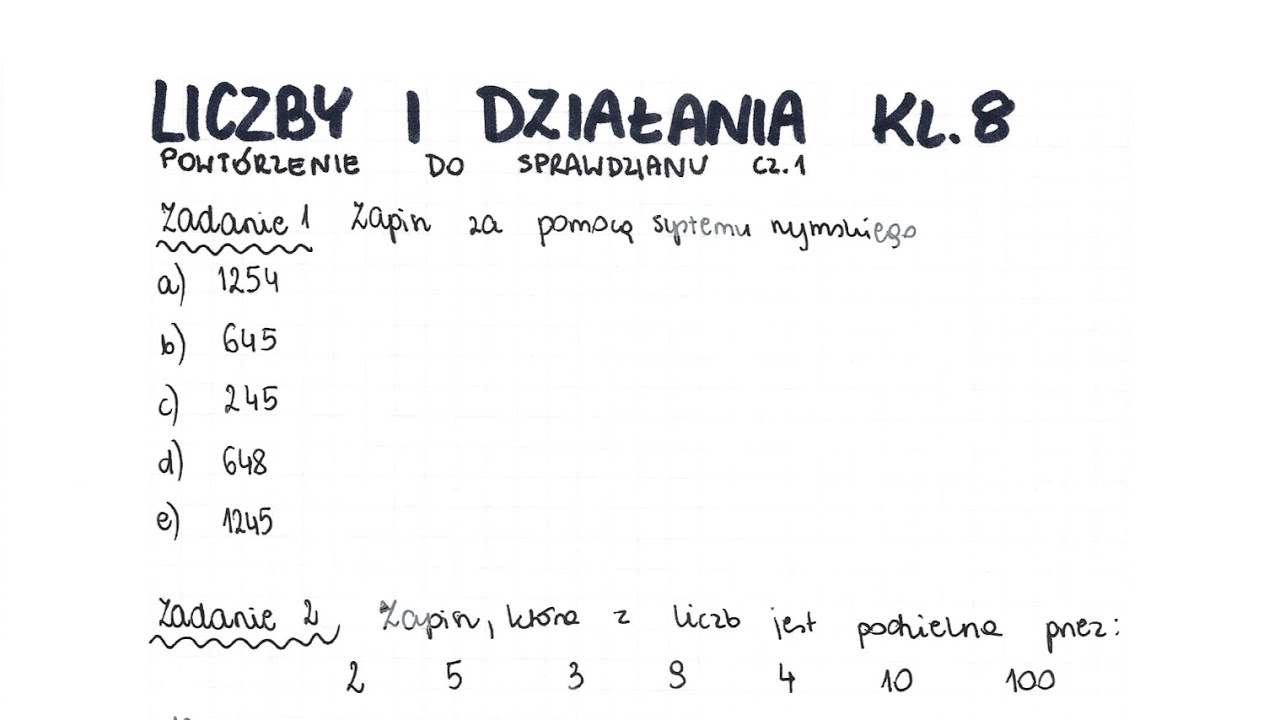 LICZBY I DZIAŁANIA KL.8
POWTÓRZENIE DO SPRAWDZIANU CZ.1
Zadanie 1 Zapisz za pomocą systemu rzymskiego
a) 1254
b) 645
c) 245
d) 648
e) 1245
Zadanie 2, Zapisz, która z liczb jest podzielna przez:
2 5 3 9 4 10 100